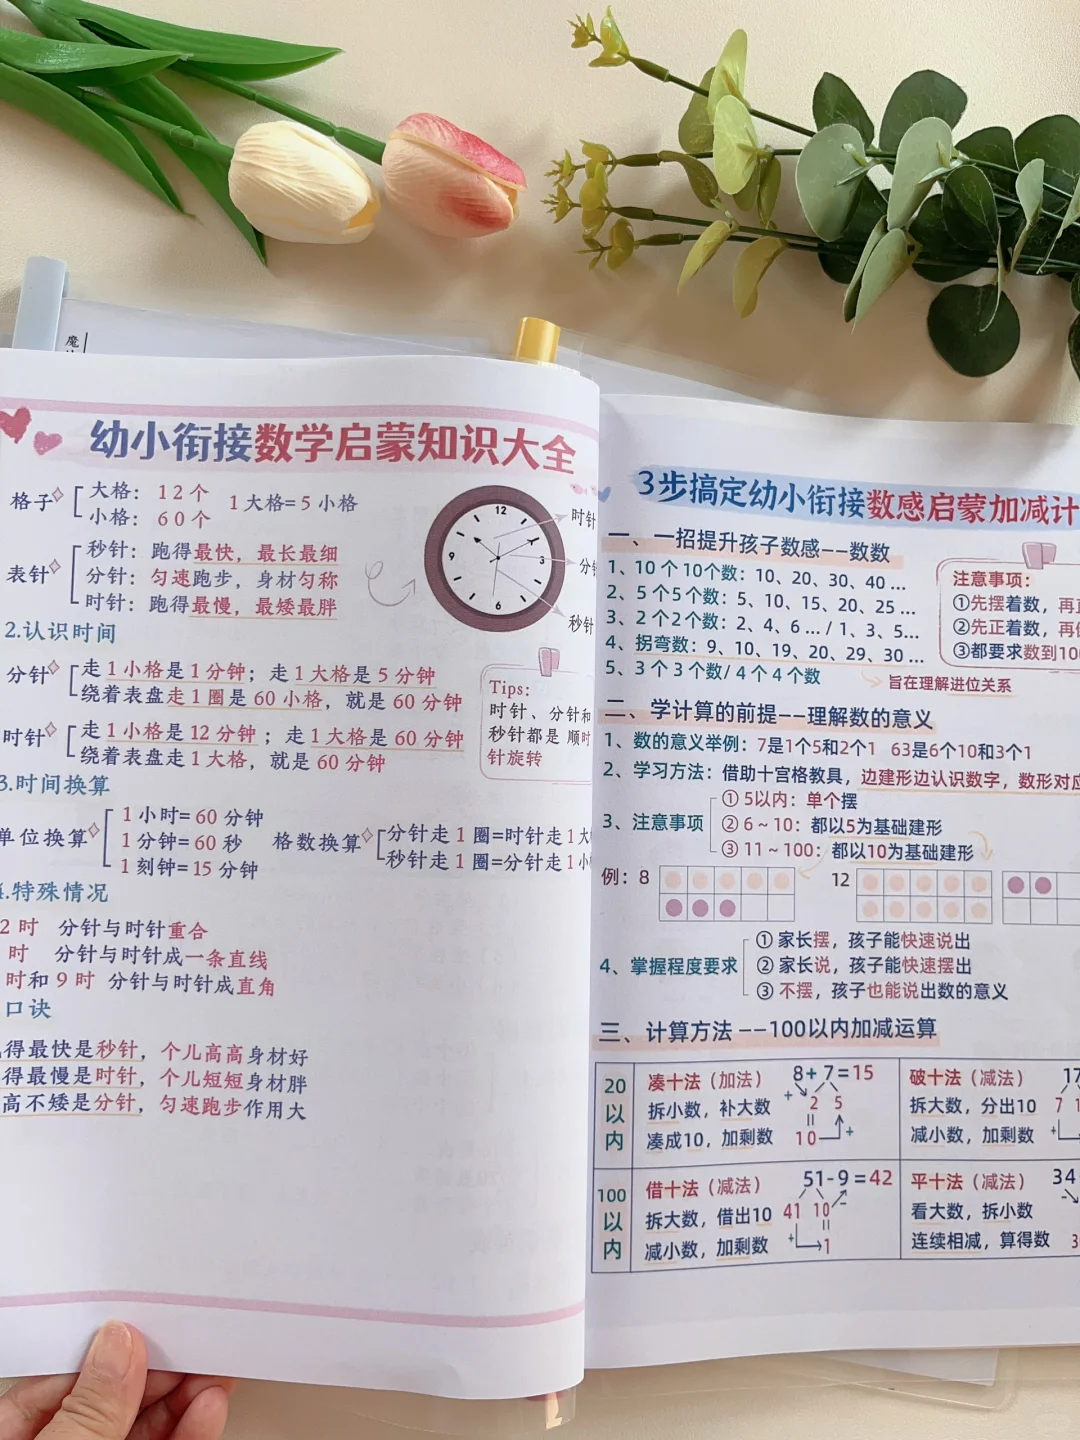 魔
幼小衔接数学启蒙知识大全
格子
大格：12个
小格：60个
1大格=5小格
表针
秒针：跑得最快，最长最细
分针：匀速跑步，身材匀称
时针：跑得最慢，最矮最胖
12
3
6
9
时针
分针
秒针
2.认识时间
分针
走1小格是1分钟；走1大格是5分钟
绕着表盘走1圈是60小格，就是60分钟
时针
走1小格是12分钟；走1大格是60分钟
绕着表盘走1大格，就是60分钟
Tips:
时针、分针和
秒针都是顺时
针旋转
3.时间换算
单位换算
1小时=60分钟
1分钟=60秒
1刻钟=15分钟
格数换算
分针走1圈=时针走1大
秒针走1圈=分针走1小
.特殊情况
2时 分针与时针重合
时 分针与时针成一条直线
时和9时 分针与时针成直角
口诀
得最快是秒针，个儿高高身材好
得最慢是时针，个儿短短身材胖
高不矮是分针，匀速跑步作用大
3步搞定幼小衔接数感启蒙加减计
一、一招提升孩子数感--数数
1、10个10个数：10、20、30、40...
2、5个5个数：5、10、15、20、25...
3、2个2个数：2、4、6.../1、3、5...
4、拐弯数：9、10、19、20、29、30...
5、3个3个数/4个4个数
旨在理解进位关系
注意事项：
①先摆着数，再
②先正着数，再
③都要求数到100
二、学计算的前提--理解数的意义
1、数的意义举例：7是1个5和2个1 63是6个10和3个1
2、学习方法：借助十宫格教具，边建形边认识数字，数形对应
3、注意事项
①5以内：单个摆
②6~10：都以5为基础建形
③11~100：都以10为基础建形
例：8
12
4、掌握程度要求
①家长摆，孩子能快速说出
②家长说，孩子能快速摆出
③不摆，孩子也能说出数的意义
三、计算方法--100以内加减运算
20以内
凑十法（加法）
拆小数，补大数
凑成10，加剩数
8+7=15
+ 2 5
=
10 +
破十法（减法）
拆大数，分出10
减小数，加剩数
17
7 1
+
100以内
借十法（减法）
拆大数，借出10
减小数，加剩数
51-9=42
41 10 -
=
+ 1
平十法（减法）
看大数，拆小数
连续相减，算得数
34
-
3